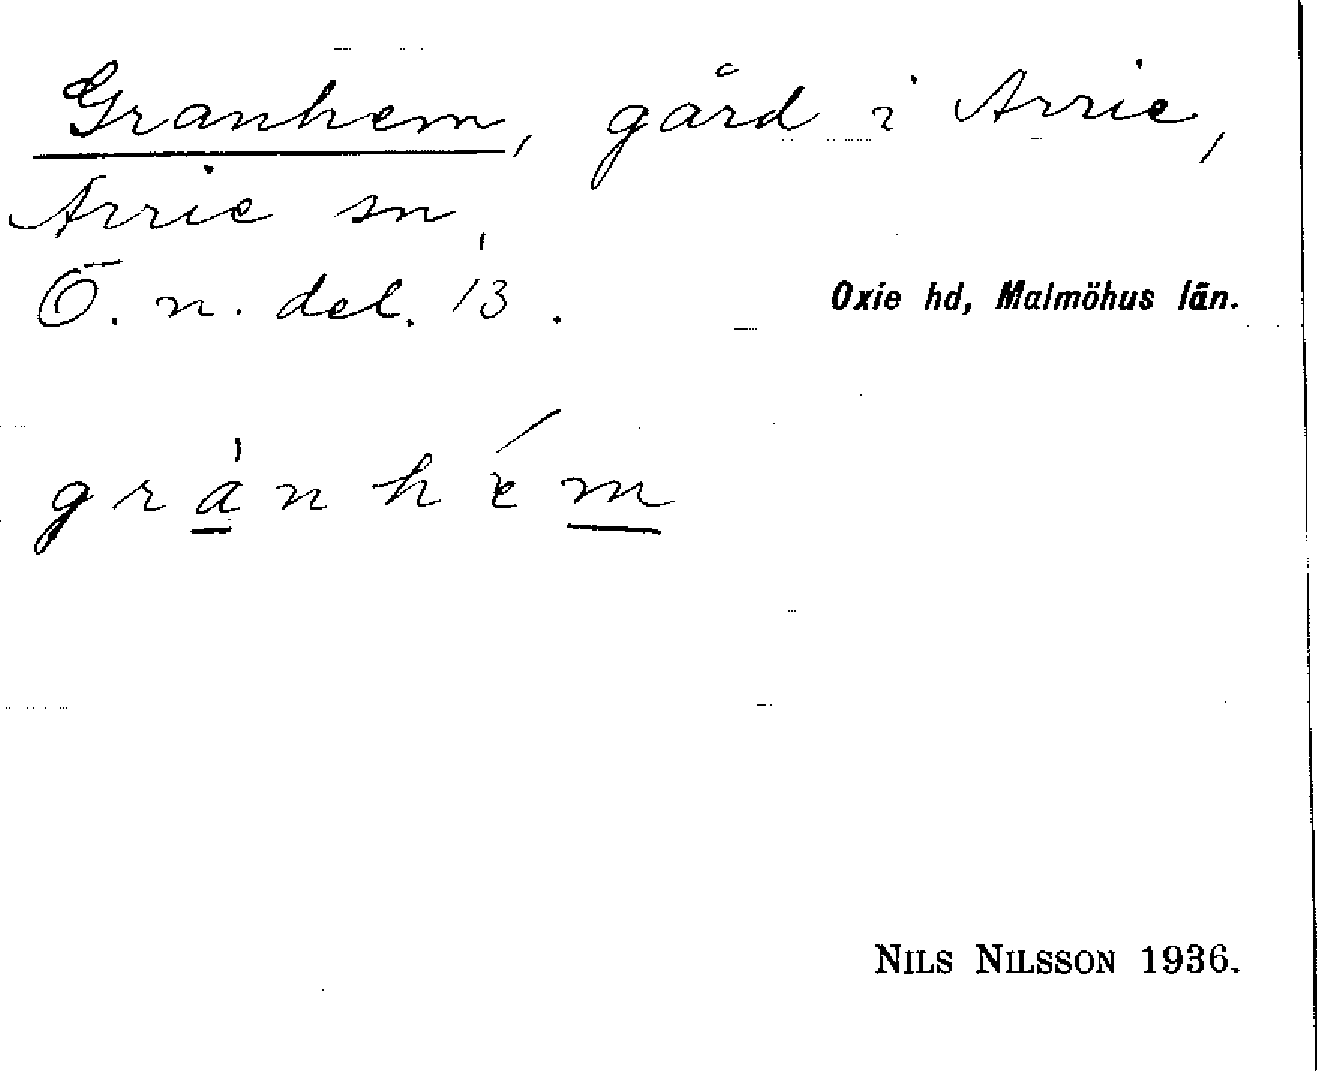 Granhem, gård i Arrie,
Arrie sn,
Ö. n. del. 13.
Oxie hd, Malmöhus län.
grànhém
NILS NILSSON 1936.